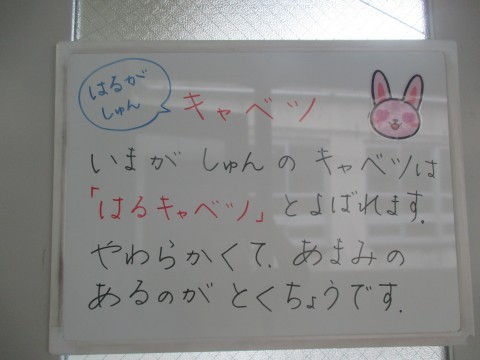 はるが
しゅん
キャベツ
いまが しゅんの キャベツは
「はるキャベツ」 とよばれます.
やわらかくて. あまみの
あるのが とくちょうです.